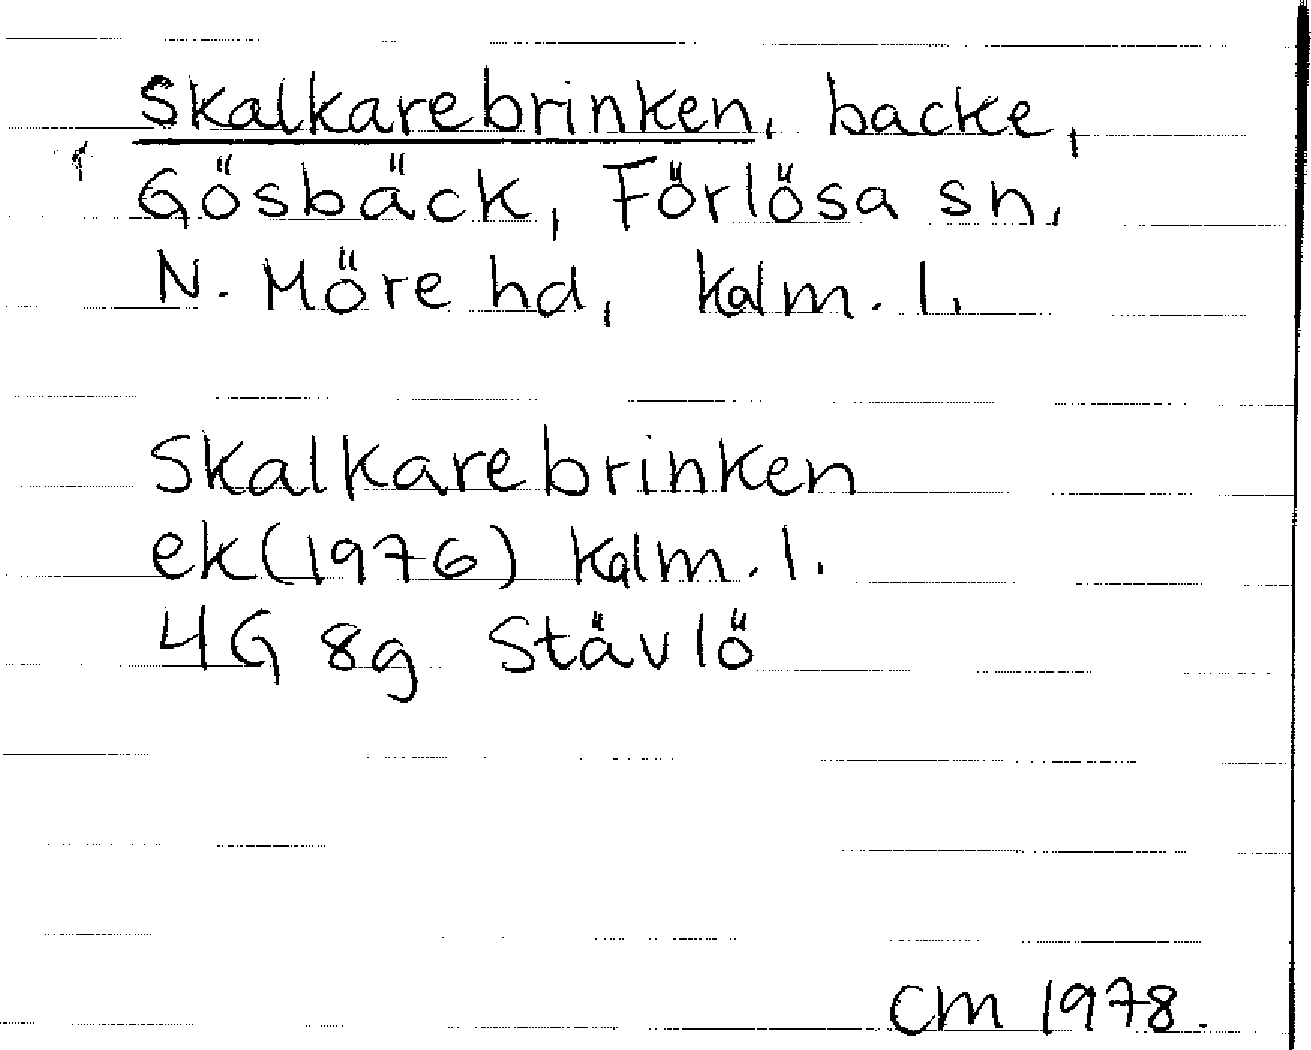 Skalkarebrinken, backe,
Gösbäck, Förlösa sn,
N. Möre hd, Kalm. l.
Skalkarebrinken
ek(1976) Kalm. l.
4G 8g Stävlö
CM 1978.